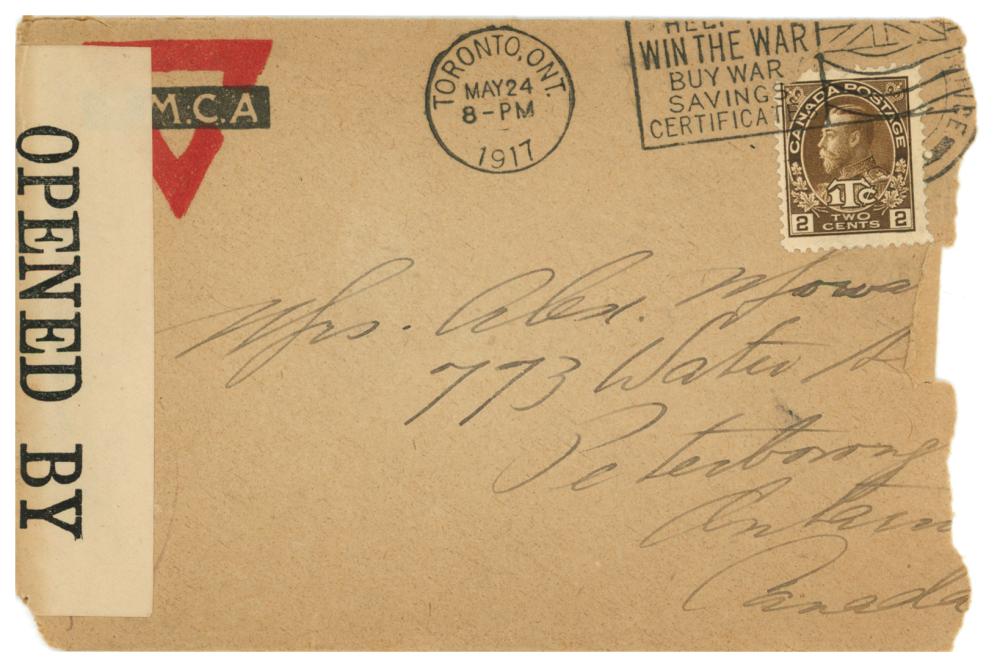 OPENED BY
M.C.A
TORONTO, ONT.
MAY 24
8-PM
1917
HELP
WIN THE WAR
BUY WAR
SAVINGS
CERTIFICAT
CANADA POSTAGE
1Tc
2 TWO CENTS 2
Mrs. Alex. Mowa
773 Water St
Peterboroug
Ontario
Canada